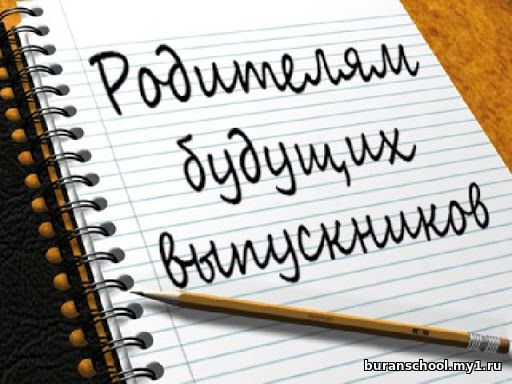 Родителям
будущих
выпускников
buranschool.my1.ru